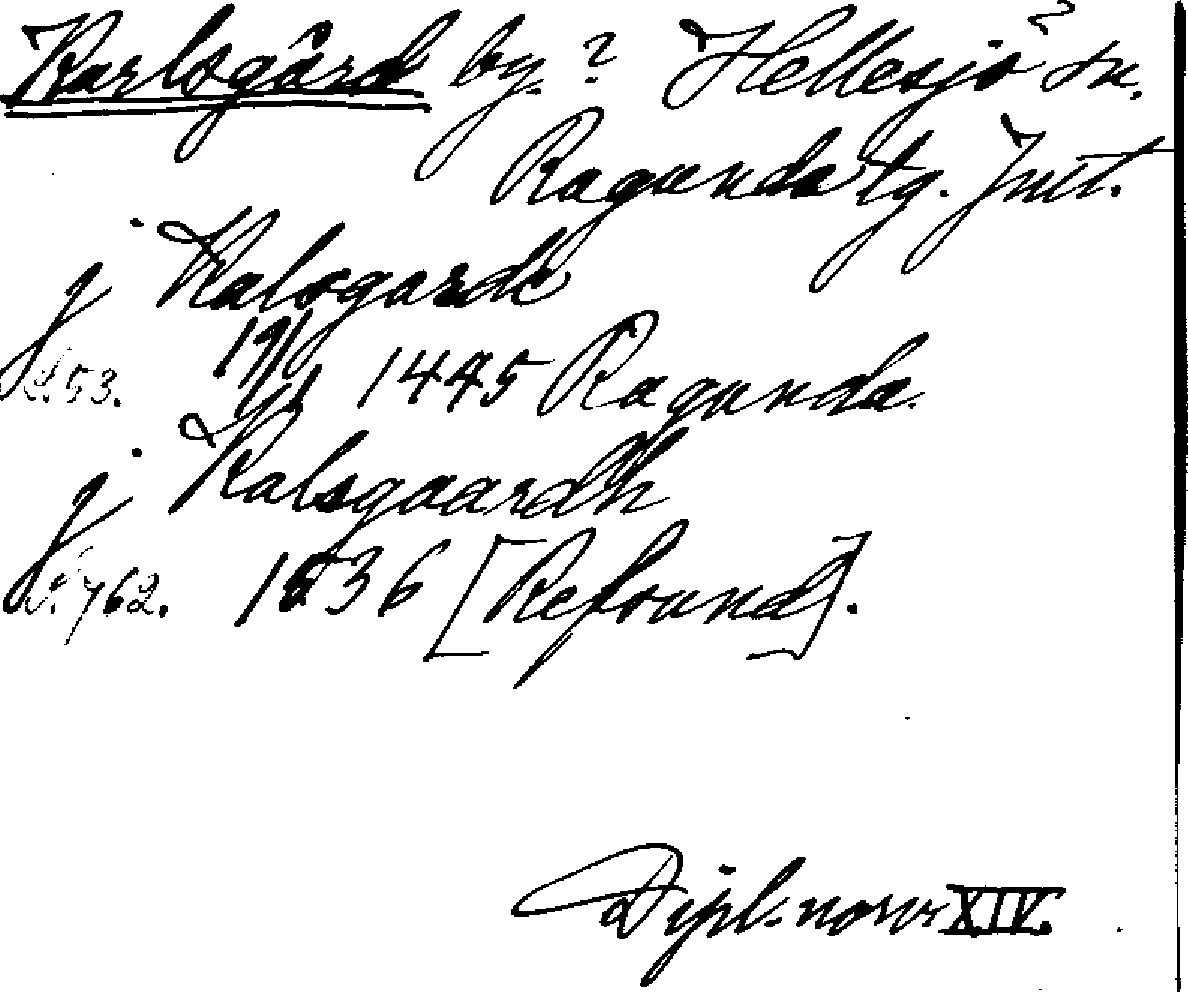 Karlsgård by.? Hellesjö sn.
Ragunda tg. Jmt.
j Kalsgarde
s. 53. 19/12 1445 Ragunda.
j Kalsgaardh
s. 762. 1636 [Refsund].
Dipl. norv. XIV.